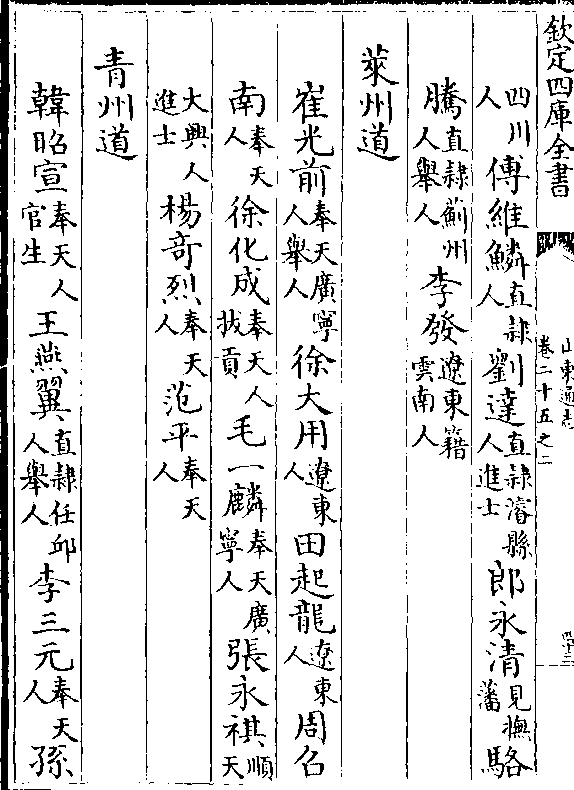 欽定四庫全書
山東通志
卷二十五之二
四十二
四川人傅維鱗直隸人劉達直隸濬縣人進士郎永清見撫藩駱
騰直隸薊州人舉人李發遼東籍雲南人
萊州道
崔光前奉天廣寧人舉人徐大用遼東人田起龍遼東人周召
南奉天人徐化成奉天人拔貢毛一麟奉天廣寧人張永祺順天
大興人進士楊竒烈奉天人范平奉天人
青州道
韓昭宣奉天人官生王燕翼直隸任邱人舉人李三元奉天人孫